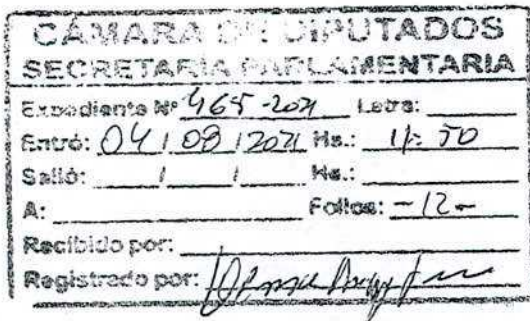 CÁMARA DE DIPUTADOS
SECRETARÍA PARLAMENTARIA
Expediente Nº 465-2021 Letra:
Entró: 04 / 08 / 2021 Hs.: 11:50
Salió: / / Hs.:
A: Folios: -12-
Recibido por:
Registrado por: